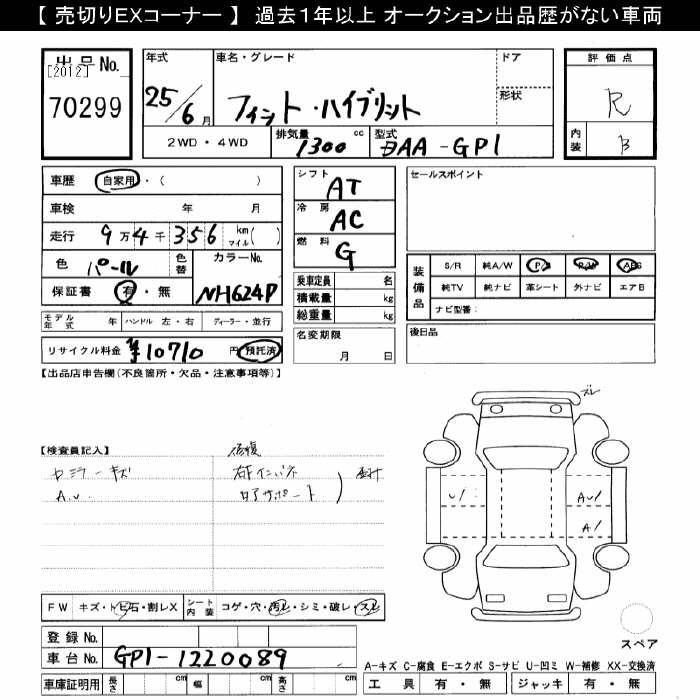 【 売切りEXコーナー 】 過去1年以上 オークション出品歴がない車両
出品 No.
[2012]
70299
年式
25/6月
車名・グレード
フィット・ハイブリット
ドア
形状
2WD・4WD
排気量
1300 cc
型式
DAA-GP1
評価点
R
内装
B
車歴 自家用・( )
車検 年 月
走行 9万4千356 km マイル( )
色 パール 色替 カラーNo.
保証書 有・無 NH624P
モデル年式 年 ハンドル 左・右 ディーラー・並行
リサイクル料金 ¥10710 円 預託済
シフト AT
冷房 AC
燃料 G
乗車定員 名
積載量 kg
総重量 kg
名変期限
月 日
セールスポイント
装備品
S/R 純A/W P/S P/W ABS
純TV 純ナビ 革シート 外ナビ エアB
ナビ型番:
後日品
【出品店申告欄(不良箇所・欠品・注意事項等)】
【検査員記入】
キズ
A.U.
修復
サポート
ズレ
U1
AU1
A1
FW キズ・トビ石・割レX シート内装 コゲ・穴・汚レ・シミ・破レ・スレ
登録 No.
車台 No. GP1-1220089
車庫証明用 長さ cm 幅 cm 高さ cm
スペア
A-キズ C-腐食 E-エクボ S-サビ U-凹ミ W-補修 XX-交換済
工具 有・無 ジャッキ 有・無